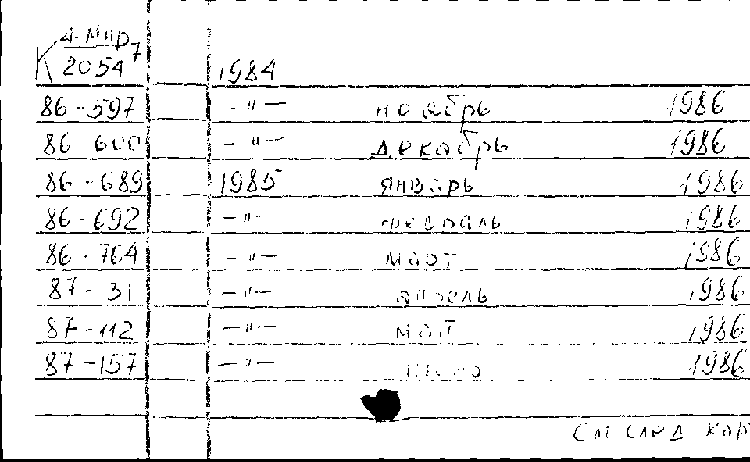 4-Мир7
К 2054 1984
86-597 -"- ноябрь 1986
86 600 -"- декабрь 1986
86-689 1985 январь 1986
86-692 -"- февраль 1986
86-764 -"- март 1986
87-31 -"- апрель 1986
87-112 -"- май 1986
87-157 -"- июнь 1986
См след кар